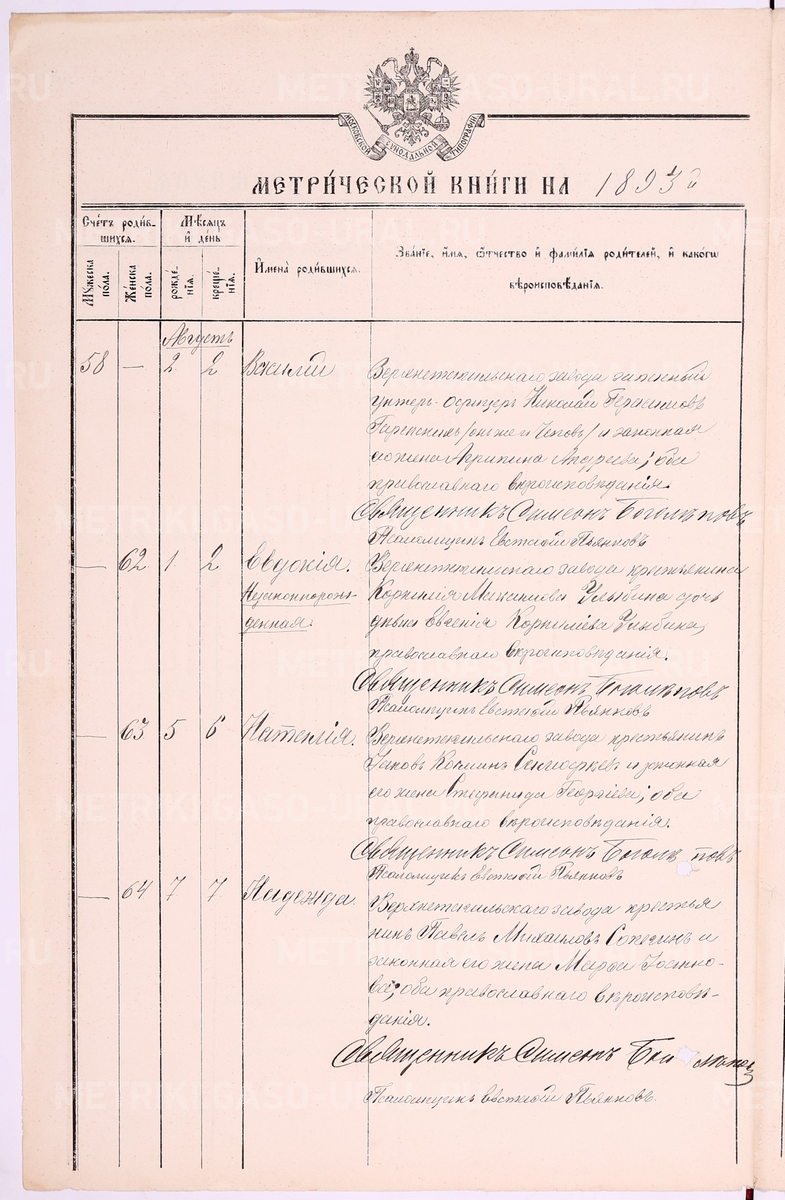 МОСКОВСКОЙ СѴНОДАЛЬНОЙ ТИПОГРАФІИ
МЕТРИЧЕСКОЙ КНИГИ НА 1893 г
Счетъ родив-
шихся.
Мѣсяцъ
и день
Имена родившихся.
Званіе, имя, отчество и фамилія родителей, и какогѡ
вѣроисповѣданія.
Мужеска
пола.
Женска
пола.
рожде-
нія.
креще-
нія.
Августъ
58 — 2 2 Василій
Верхнетагильскаго завода запасный
унтеръ-офицеръ Николай Герасимовъ
/онъ же и / и законная
его жена Агрипина Андреева; оба
православнаго вѣроисповѣданія.
Священникъ Симеонъ Боголѣповъ
Псаломщикъ Евстафій Пьянковъ
— 62 1 2 Евдокія.
Незаконнорож-
денная.
Верхнетагильскаго завода крестьянина
Корнилія Максимова Улыбина дочь
дѣвица Евгенія Корнилиева Улыбина,
православнаго вѣроисповѣданія.
Священникъ Симеонъ Боголѣповъ
Псаломщикъ Евстафій Пьянковъ
— 63 5 6 Наталія.
Верхнетагильскаго завода крестьянинъ
Іаковъ Косминъ и законная
его жена Георгіева; оба
православнаго вѣроисповѣданія.
Священникъ Симеонъ Боголѣповъ
Псаломщикъ Евстафій Пьянковъ
— 64 7 7 Надежда.
Верхнетагильскаго завода крестья
нинъ Павелъ Михаиловъ и
законная его жена Марѳа Іоанно-
ва; оба православнаго вѣроисповѣ-
данія.
Священникъ Симеонъ Боголѣповъ
Псаломщикъ Евстафій Пьянковъ.
METRIKI.GASO-URAL.RU